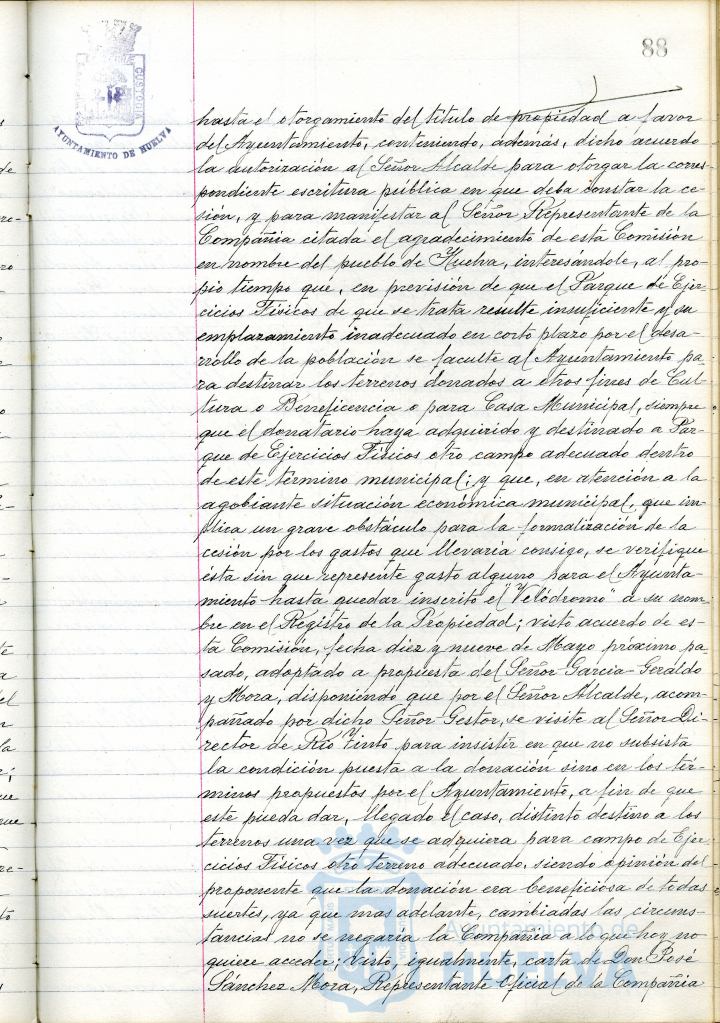 88
CUSTODIA
AYUNTAMIENTO DE HUELVA
hasta el otorgamiento del título de propiedad a favor
del Ayuntamiento, conteniendo, además, dicho acuerdo
la autorización al Señor Alcalde para otorgar la corres-
pondiente escritura pública en que deba constar la ce-
sión, y para manifestar al Señor Representante de la
Compañía citada el agradecimiento de esta Comisión
en nombre del pueblo de Huelva, interesandole, al pro-
pio tiempo que, en previsión de que el Parque de Ejer-
cicios Físicos de que se trata resulte insuficiente y su
emplazamiento inadecuado en corto plazo por el desa-
rrollo de la población se faculte al Ayuntamiento pa-
ra destinar los terrenos donados a otros fines de Cul-
tura o Beneficencia o para Casa Municipal, siempre
que el donatario haya adquirido y destinado a Par-
que de Ejercicios Físicos otro campo adecuado dentro
de este término municipal; y que, en atención a la
agobiante situación económica municipal, que im-
plica un grave obstáculo para la formalización de la
cesión por los gastos que llevaría consigo, se verifique
ésta sin que represente gasto alguno para el Ayunta-
miento hasta quedar inscrito el "Velódromo" a su nom-
bre en el Registro de la Propiedad; visto acuerdo de es-
ta Comisión, fecha diez y nueve de Mayo próximo pa-
sado, adoptado a propuesta del Señor Garcia-Geraldo
y Mora, disponiendo que por el Señor Alcalde, acom-
pañado por dicho Señor Gestor, se visite al Señor Di-
rector de Rio Tinto para insistir en que no subsista
la condición puesta a la donación sino en los tér-
minos propuestos por el Ayuntamiento, a fin de que
este pueda dar, llegado el caso, distinto destino a los
terrenos una vez que se adquiera para campo de Ejer-
cicios Físicos otro terreno adecuado, siendo opinión del
proponente que la donación era beneficiosa de todas
suertes, ya que mas adelante, cambiadas las circuns-
tancias no se negaría la Compañía a lo que hoy no
quiere acceder; visto, igualmente, carta de Don José
Sánchez Mora, Representante Oficial de la Compañía
Ayuntamiento de
HUELVA